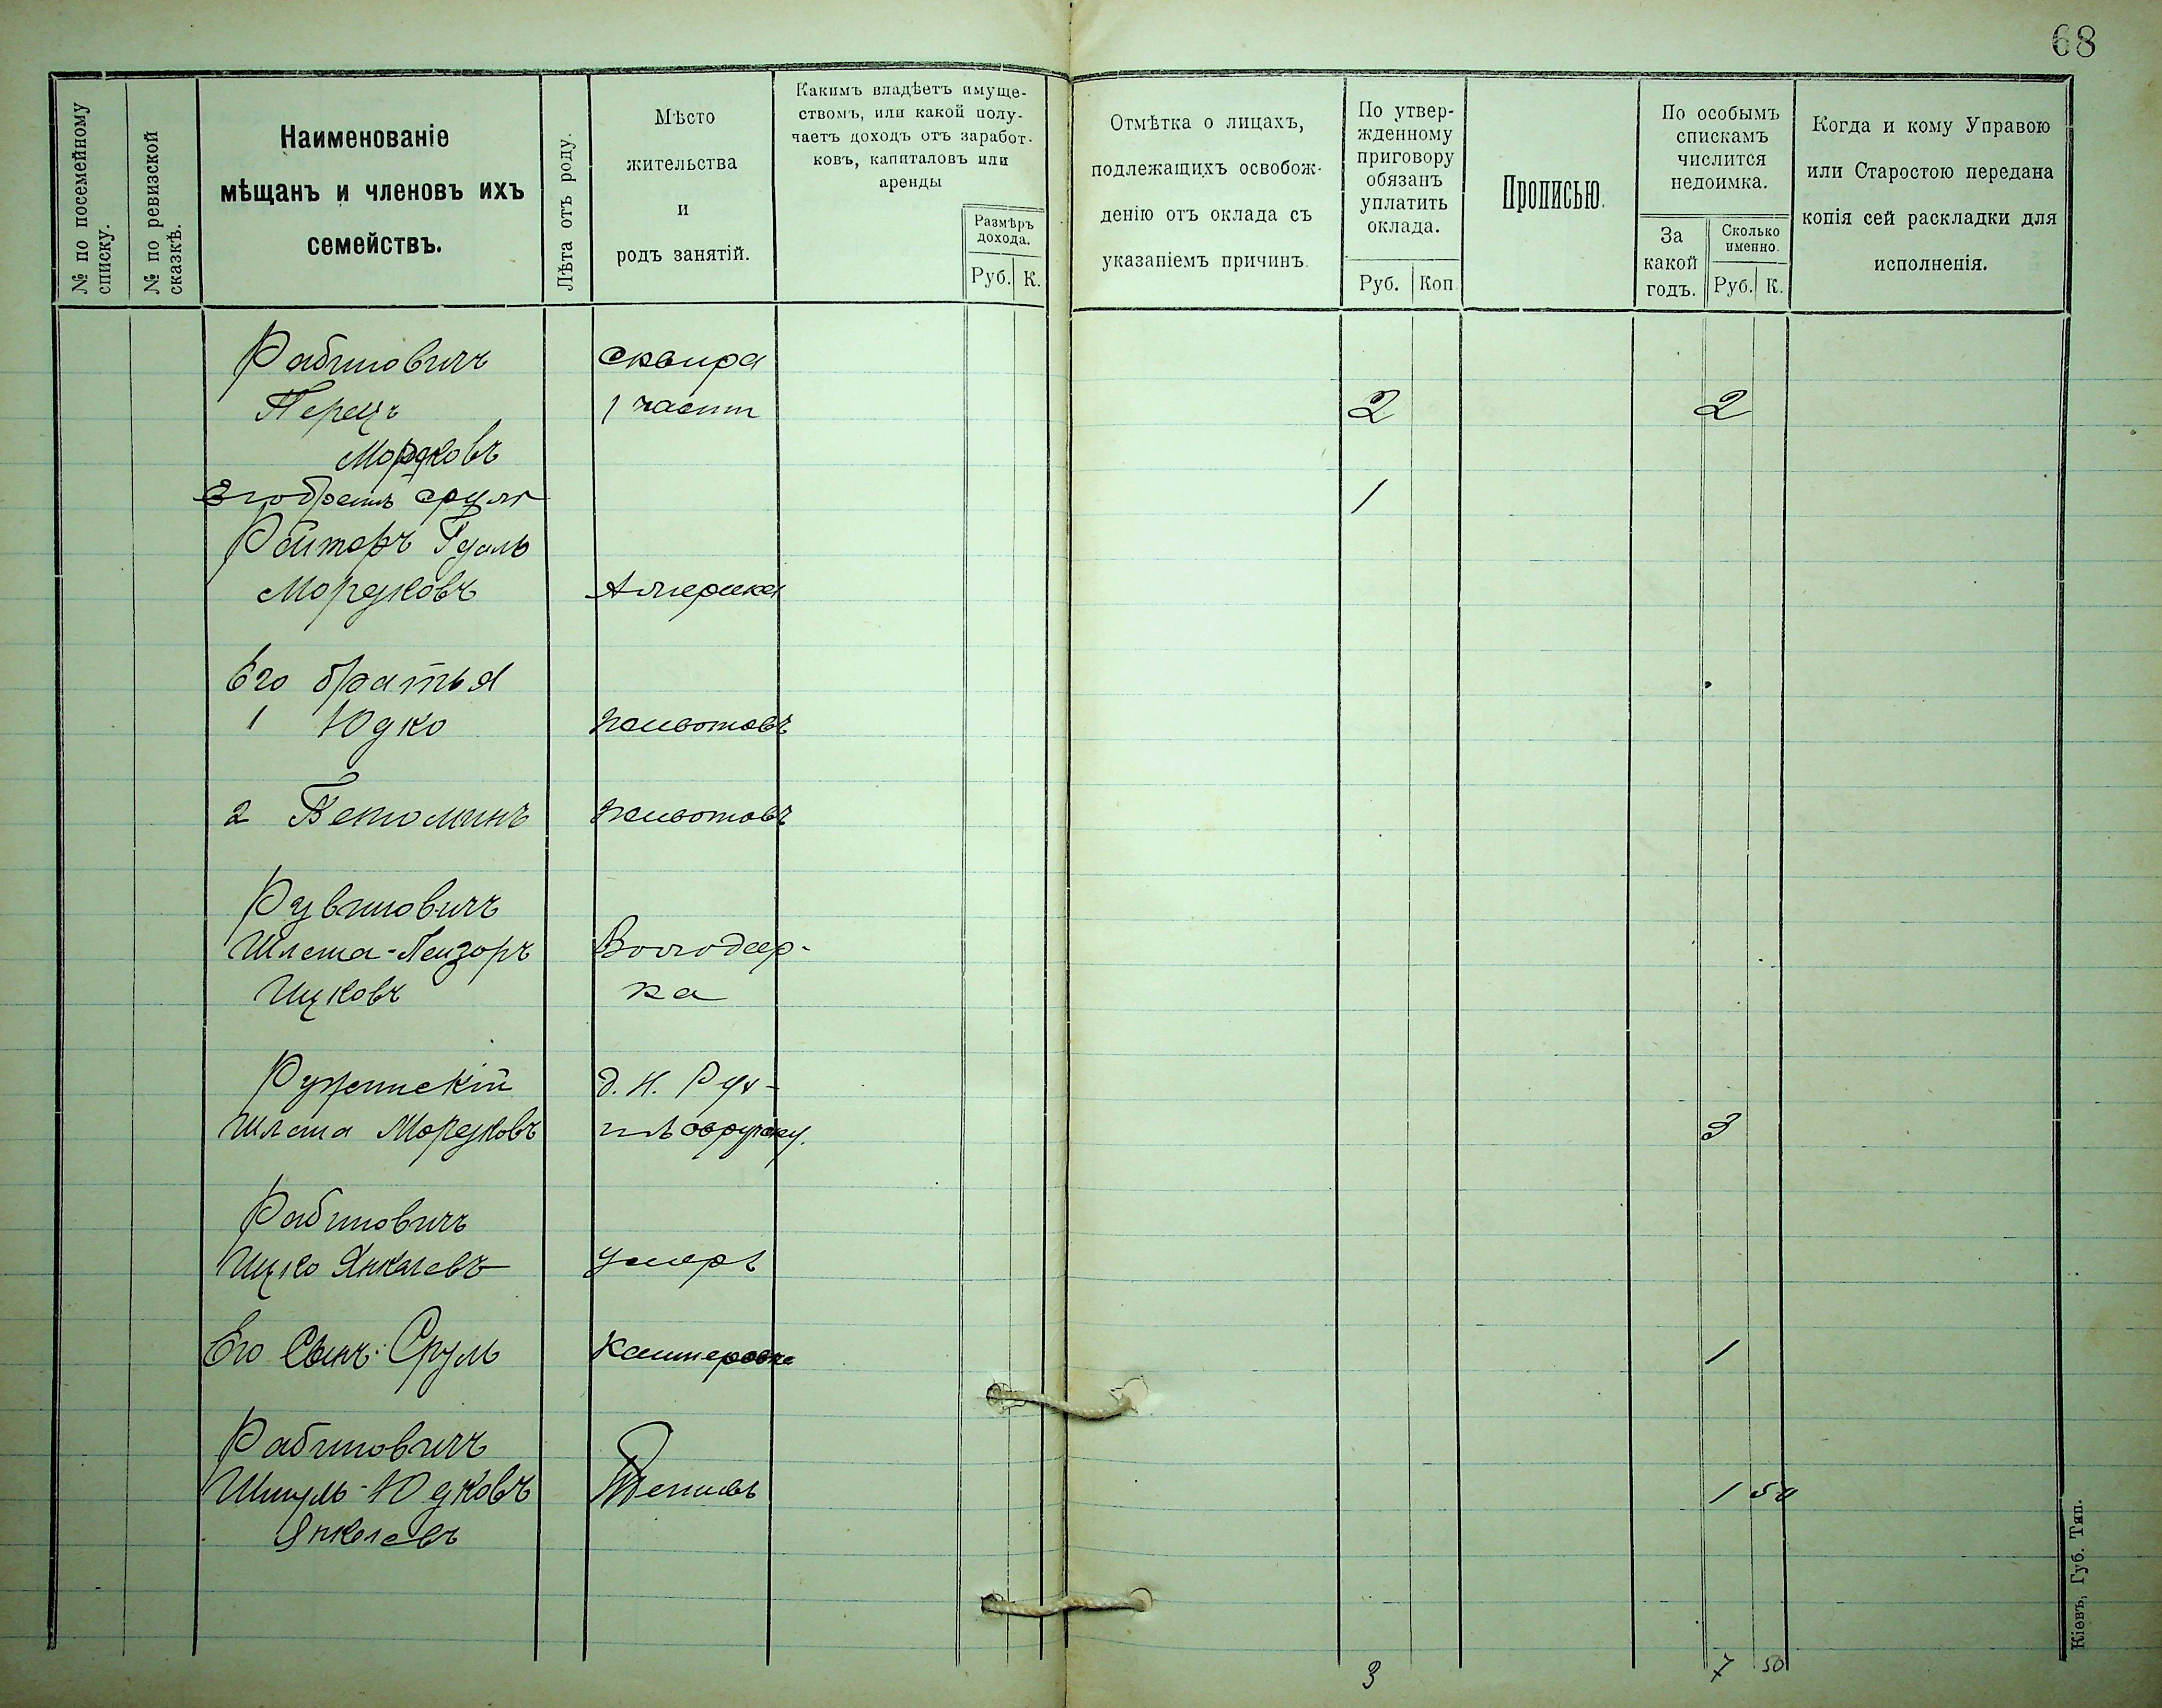 68
№ по посемейному
списку.
№ по ревизской
сказкѣ.
Наименованіе
мѣщанъ и членовъ ихъ
семействъ.
Лѣта отъ роду.
Мѣсто
жительства
и
родъ занятій.
Какимъ владѣетъ имуще-
ствомъ, или какой полу-
чаетъ доходъ отъ заработ-
ковъ, капиталовъ или
аренды
Размѣръ
дохода.
Руб. К.
Отмѣтка о лицахъ,
подлежащихъ освобож-
денію отъ оклада съ
указаніемъ причинъ
По утвер-
жденному
приговору
обязанъ
уплатить
оклада.
Руб. Коп
Прописью.
По особымъ
спискамъ
числится
недоимка.
За
какой
годъ.
Сколько
именно.
Руб. К.
Когда и кому Управою
или Старостою передана
копія сей раскладки для
исполненія.
Рабиновичъ Сквира
Перецъ 1 части 2 2
Мордковъ
Его братъ Сруль 1
Ройтеръ Гдаль
Мордковъ Америка
Его братья
1 Юдко Животовъ
2 Беніоминъ Животовъ
Рувиновичъ
Шлема-Лейзоръ Володар-
Ицковъ ка
Ружинскій
Шлема Мордковъ 3
Рабиновичъ
Ицко Янкелевъ Умеръ
Его Сынъ Сруль 1
Рабиновичъ
Шмуль-Юдковъ 1 50
Янкелевъ
3 7 50
Кіевъ, Губ. Тип.